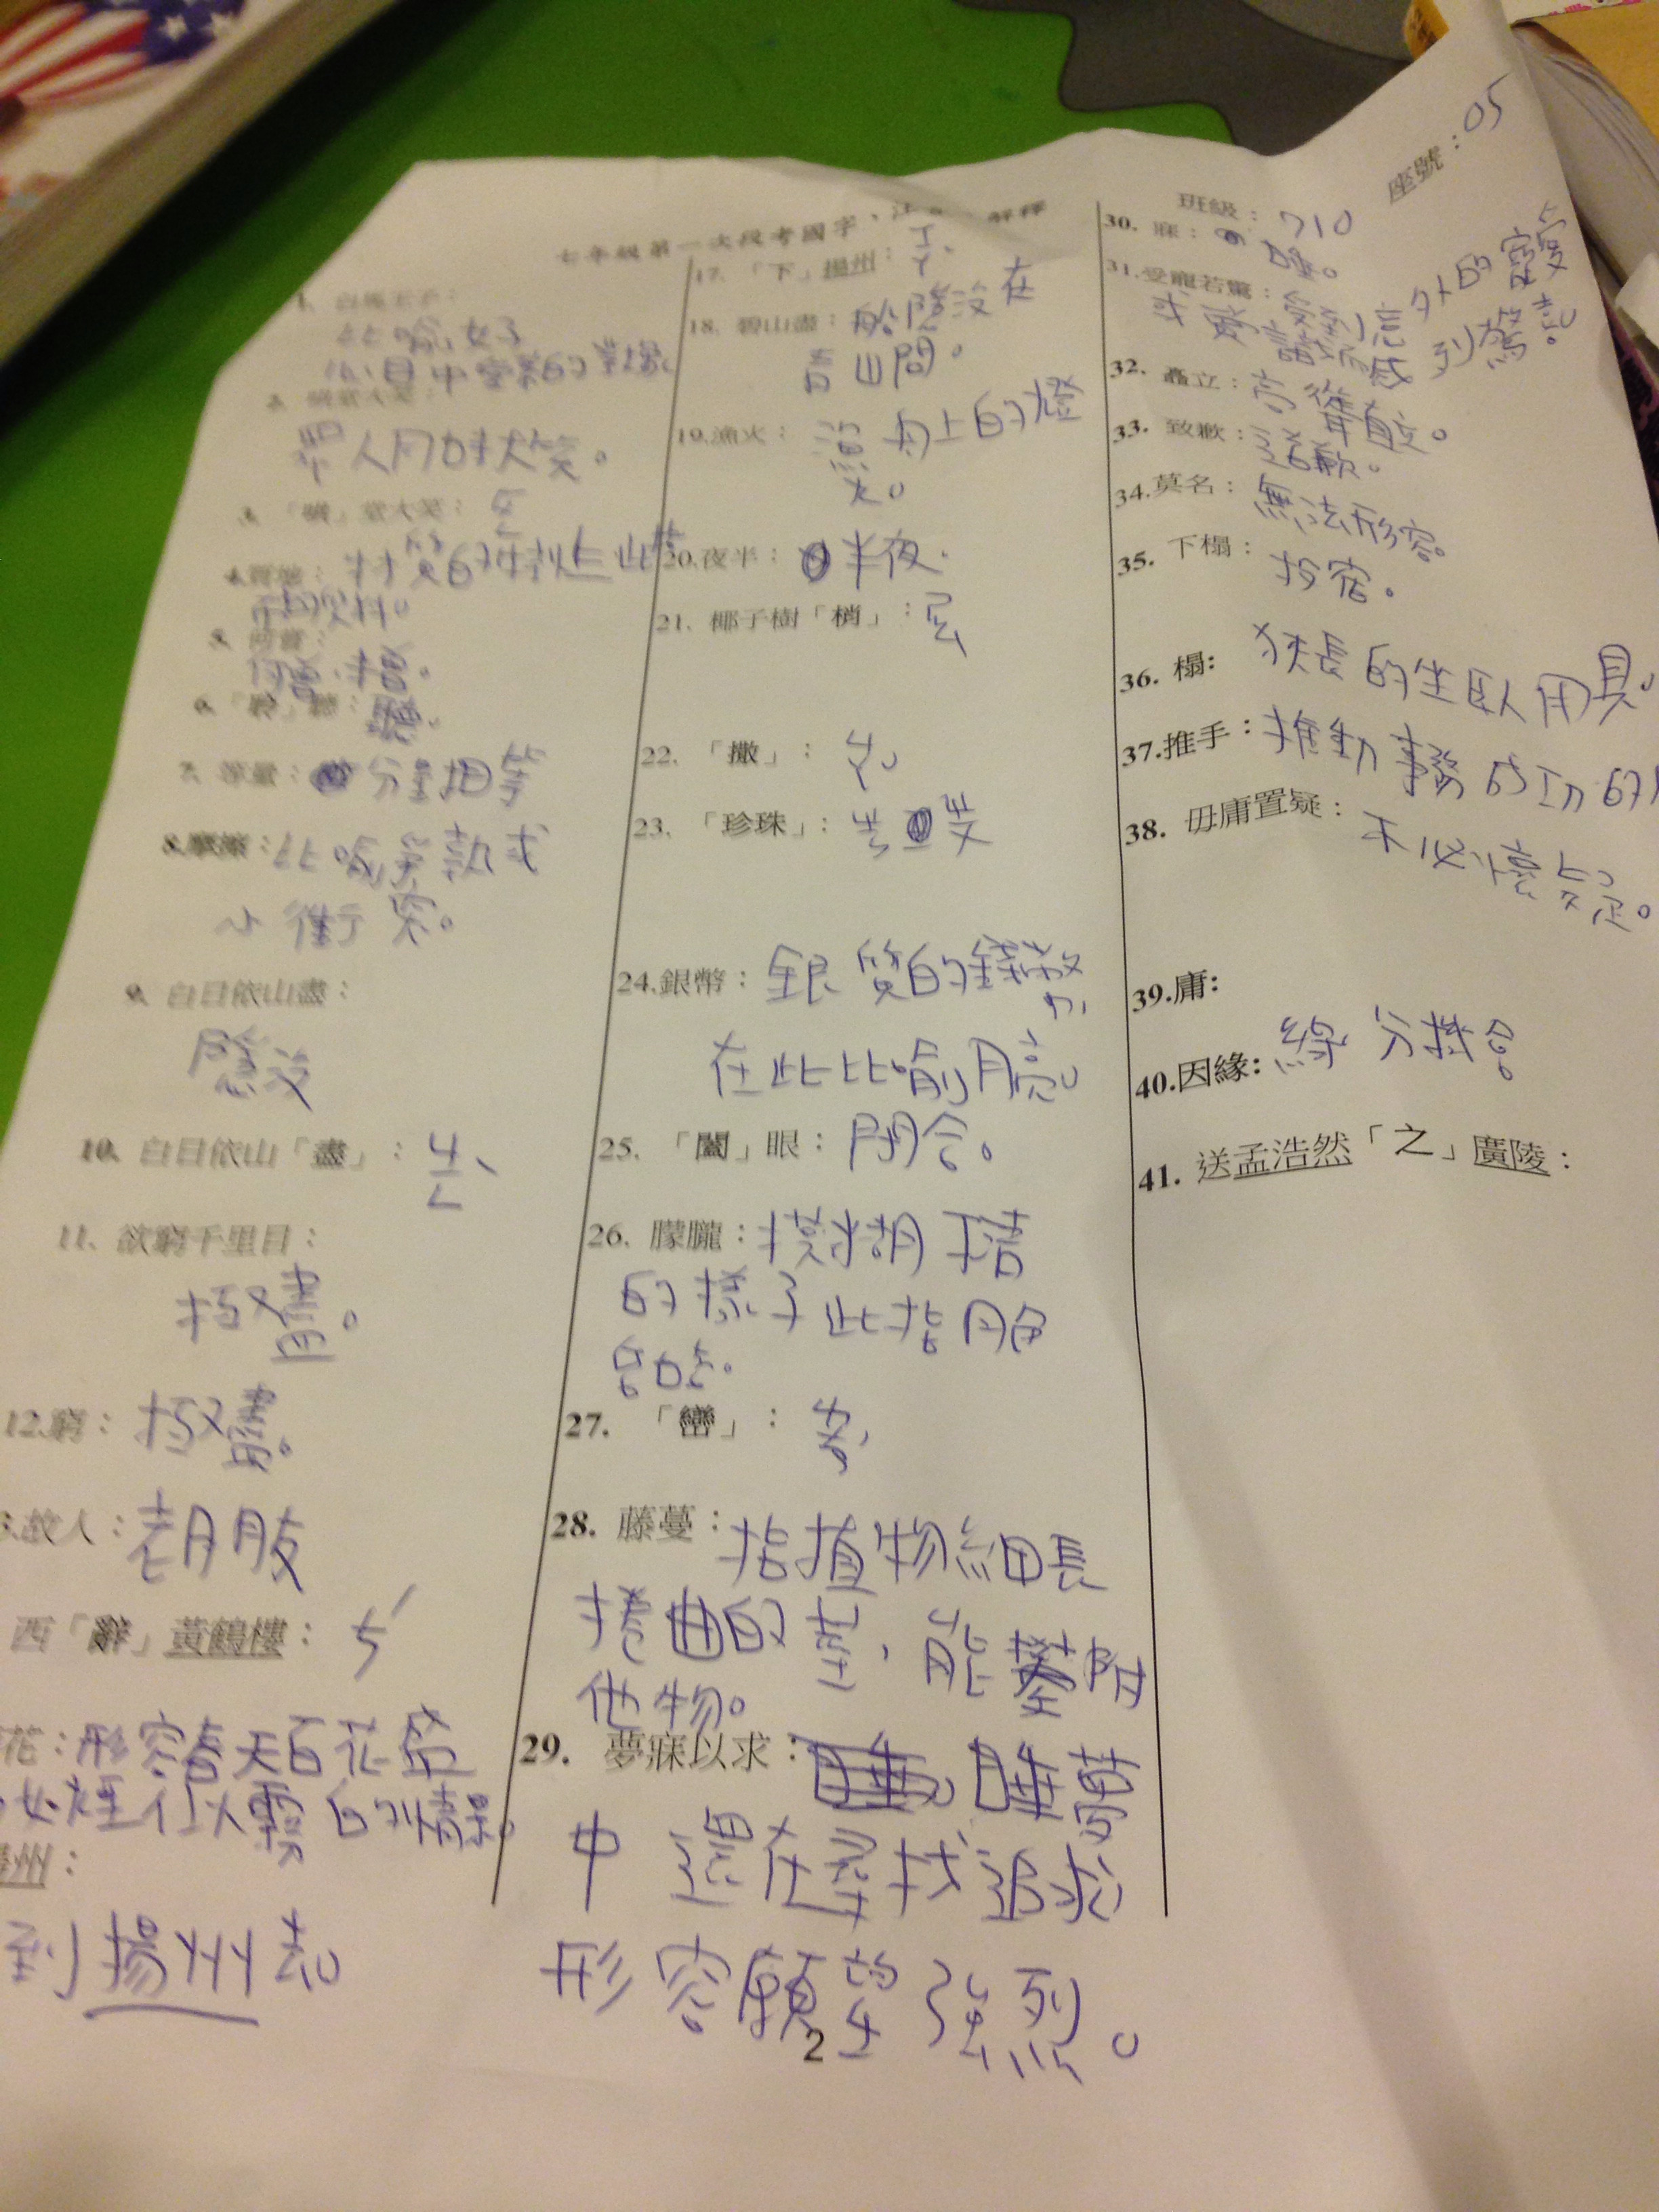 座號：05
班級：710
七年級第一次段考國字、注
解釋
1.
比喻女子
心目中
2.
眾人同時大笑。
3. 「   」堂大笑：ㄏ
4.質地：材質的特性此指
布的
5. 何嘗：
何曾、
6.
聽。
7.      ：分量相等
8.摩擦：比喻爭執或
小衝突。
9. 白日依山盡：
隱沒
10. 白日依山「盡」：ㄐㄧㄣˋ
11. 欲窮千里目：
極盡。
12.窮：極盡。
故人：老朋友
西「辭」黃鶴樓：ㄘˊ
花：形容春天百花盛
如煙似霧的情景。
州：
到揚州去
17. 「下」揚州：ㄒㄧㄚˋ
18. 碧山盡：船隱沒在
青山間。
19.漁火：漁舟上的燈
火。
20.夜半：半夜.
21. 椰子樹「梢」：
22. 「撒」：
23. 「珍珠」：
24.銀幣：銀質的錢幣
在此比喻月亮
25. 「闔」眼：閉合。
26. 朦朧：模糊不清
的樣子此指月色
昏暗。
27. 「巒」：
28. 藤蔓：指植物細長
捲曲的莖，能攀附
他物。
29. 夢寐以求：睡夢
中還在尋找追求
形容願望強烈。
30. 寐：睡。
31.受寵若驚：
外的寵愛
或
感到驚訝。
32. 矗立：高聳直立。
33. 致歉：道歉。
34.莫名：無法形容。
35. 下榻：投宿。
36. 榻: 狹長的坐臥用具。
37.推手：推動事務成功的
38. 毋庸置疑：不必懷疑。
39.庸:
40.因緣: 緣分機
41. 送孟浩然「之」廣陵：
2